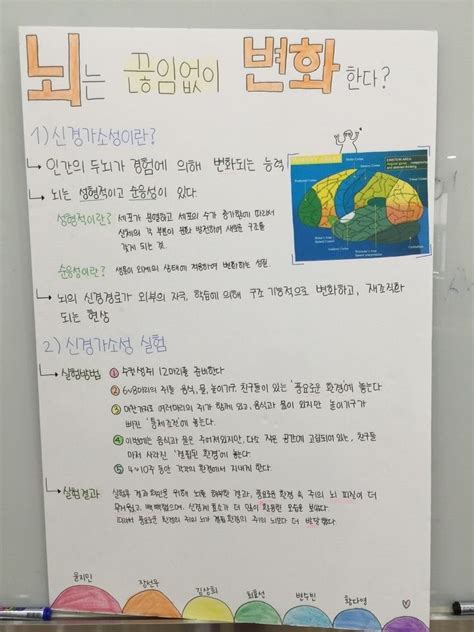 뇌는 끊임없이 변화한다?
1) 신경가소성이란?
→ 인간의 두뇌가 경험에 의해 변화되는 능력
→ 뇌는 성형적이고 순응성이 있다.
성형적이란? 세포가 분열하고 세포의 수가 증가함에 따라서
신체의 각 부분이 분화 발전하여 새로운 구조를
갖게 되는 것.
순응성이란? 생물이 외계의 상태에 적응하여 변화하는 성질.
→ 뇌의 신경경로가 외부의 자극, 학습에 의해 구조 기능적으로 변화하고, 재조직화
되는 현상
2) 신경가소성 실험
→ 실험방법 ① 수컷생쥐 12마리를 준비한다
② 6~8마리의 쥐를 음식, 물, 놀이기구 친구들이 있는 '풍요로운 환경'에 놓는다
③ 마찬가지로 여러마리의 쥐가 함께 있고, 음식과 물이 있지만 놀이기구가
빠진 '통제조건'에 놓는다.
④ 이번에는 음식과 물은 주어져있지만, 다소 작은 공간에 고립되어 있는, 친구들
마저 사라진 '결핍된 환경'에 놓는다.
⑤ 4~10주 동안 각각의 환경에서 지내게 한다.
→ 실험결과 실험후 결과 확인을 위해 뇌를 해부한 결과, 풍요로운 환경 속 쥐의 뇌 피질이 더
무거웠고, 빽빽했으며, 신경계 효소가 더 많이 활동한 모습을 보였다.
따라서 풍요로운 환경의 쥐의 뇌가 결핍 환경의 쥐의 뇌보다 더 발달했다.
윤지민 장선우 김상희 최효선 변수빈 황다영